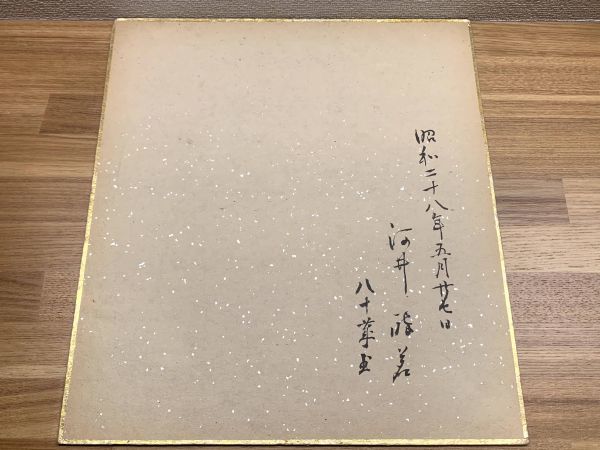 昭和二十八年五月廿七日
河井 酔茗
八十叟書